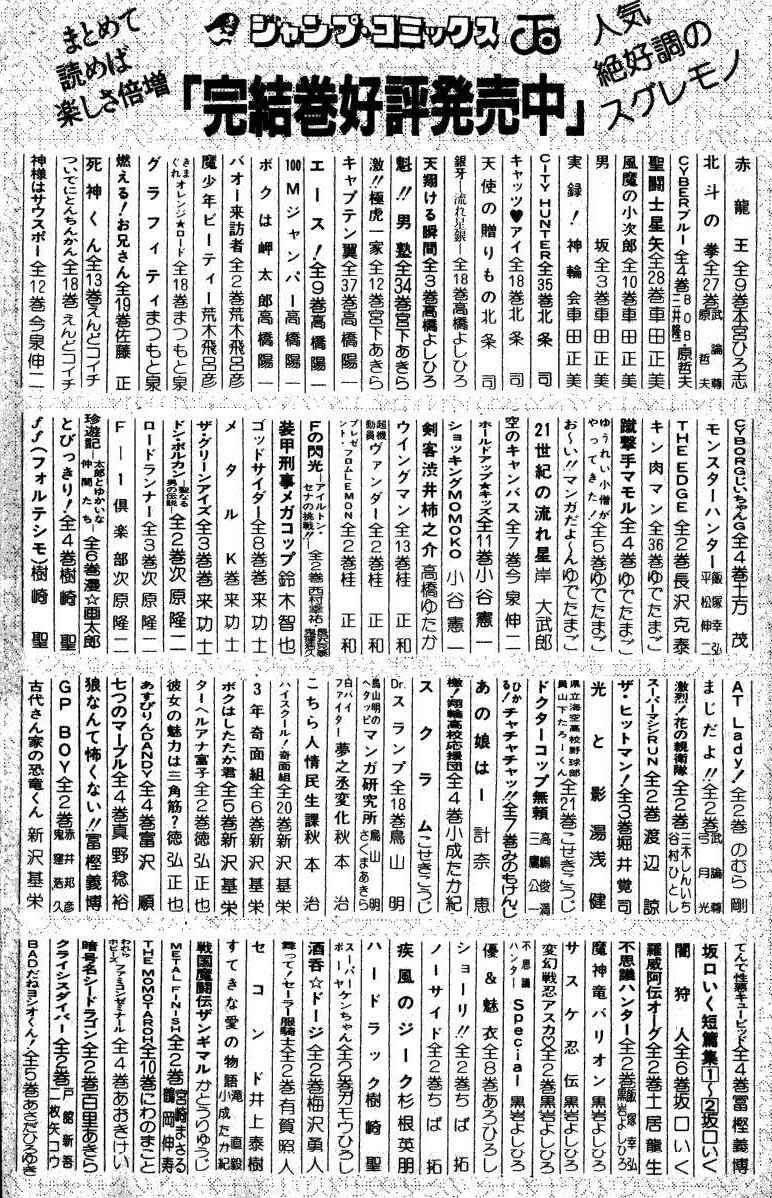 まとめて
読めば
楽しさ倍増
ジャンプ・コミックス
人気
絶好調の
スグレモノ
「完結巻好評発売中」
赤龍王 全9巻 本宮ひろ志
北斗の拳 全27巻 武論尊 原哲夫
CYBERブルー 全4巻 BOB・三井隆一 原哲夫
聖闘士星矢 全28巻 車田正美
風魔の小次郎 全10巻 車田正美
男坂 全3巻 車田正美
実録！神輪会 車田正美
CITY HUNTER 全35巻 北条司
キャッツ♥アイ 全18巻 北条司
天使の贈りもの 北条司
銀牙―流れ星銀― 全18巻 高橋よしひろ
天翔ける瞬間 全3巻 高橋よしひろ
魁!!男塾 全34巻 宮下あきら
激!!極虎一家 全12巻 宮下あきら
キャプテン翼 全37巻 高橋陽一
エース！ 全9巻 高橋陽一
100Mジャンパー 高橋陽一
ボクは岬太郎 高橋陽一
バオー来訪者 全2巻 荒木飛呂彦
魔少年ビーティー 荒木飛呂彦
きまぐれオレンジ★ロード 全18巻 まつもと泉
グラフィティ まつもと泉
燃える！お兄さん 全19巻 佐藤正
死神くん 全13巻 えんどコイチ
ついでにとんちんかん 全18巻 えんどコイチ
神様はサウスポー 全12巻 今泉伸二
CYBORGじいちゃんG 全4巻 土方茂
モンスターハンター 飯塚幸弘 平松伸二
THE EDGE 全2巻 長沢克泰
キン肉マン 全36巻 ゆでたまご
蹴撃手マモル 全4巻 ゆでたまご
ゆうれい小僧がやってきた！ 全5巻 ゆでたまご
お〜い!!マンガだよ〜ん ゆでたまご
21世紀の流れ星 岸大武郎
空のキャンバス 全7巻 今泉伸二
ホールドアップ★キッズ 全11巻 小谷憲一
ショッキングMOMOKO 小谷憲一
剣客渋井柿之介 高橋ゆたか
ウイングマン 全13巻 桂正和
超機動員ヴァンダー 全2巻 桂正和
プレゼント・フロムLEMON 全2巻 桂正和
Fの閃光―アイルトン・セナの挑戦!!― 全2巻 西村幸祐
装甲刑事メガコップ 鈴木智也
ゴッドサイダー 全8巻 巻来功士
メタルK 巻来功士
ザ・グリーンアイズ 全3巻 巻来功士
ドン・ボルカン―聖なる男の伝説 全2巻 次原隆二
ロードランナー 全3巻 次原隆二
F―1倶楽部 次原隆二
珍遊記―太郎とゆかいな仲間たち― 全6巻 漫☆画太郎
とびっきり！ 全4巻 樹崎聖
ff（フォルテシモ） 樹崎聖
AT Lady！ 全2巻 のむら剛
まじだよ!! 全2巻 武論尊 弓月光
激烈！花の親衛隊 全2巻 三木しんいち 谷村ひとし
スーパーマシンRUN 全2巻 渡辺諒
ザ・ヒットマン！ 全3巻 堀井覚司
光と影 湯浅健
県立海空高校野球部員山下たろーくん 全21巻 こせきこうじ
ドクターコップ無頼 高嶋俊満 三鷹公一
ひかる！チャチャチャッ!! 全7巻 みのもけんじ
あの娘はー 計奈恵
檄！翔輪高校応援団 全4巻 小成たか紀
スクラム こせきこうじ
Dr.スランプ 全18巻 鳥山明
鳥山明のヘタッピマンガ研究所 鳥山明 さくまあきら
白バイファイター 夢之丞変化 秋本治
こちら人情民生課 秋本治
ハイスクール！奇面組 全20巻 新沢基栄
3年奇面組 全6巻 新沢基栄
ボクはしたたか君 全5巻 新沢基栄
ターヘルアナ富子 全2巻 徳弘正也
彼女の魅力は三角筋？ 徳弘正也
あすぴりんDANDY 全4巻 富沢順
七つのマーブル 全4巻 真野稔裕
狼なんて怖くない!! 冨樫義博
GP BOY 全2巻 赤井邦彦 鬼窪浩久
古代さん家の恐竜くん 新沢基栄
てんで性悪キューピッド 全4巻 冨樫義博
坂口いく短篇集1〜2 坂口いく
闇狩人 全6巻 坂口いく
羅威阿伝オーグ 全2巻 土居龍生
不思議ハンター 全2巻 飯塚幸弘 黒岩よしひろ
魔神竜バリオン 黒岩よしひろ
サスケ忍伝 黒岩よしひろ
変幻戦忍アスカ♡ 全2巻 黒岩よしひろ
不思議ハンターSpecial 黒岩よしひろ
優＆魅衣 全8巻 あろひろし
ショーリ!! 全2巻 ちば拓
ノーサイド 全2巻 ちば拓
疾風のジーク 杉根英明
ハードラック 樹崎聖
スーパーボーヤ ケンちゃん 全2巻 ガモウひろし
酒呑☆ドージ 全2巻 梅沢勇人
舞って！セーラー服騎士 全2巻 有賀照人
セコンド 井上泰樹
すてきな愛の物語 滝直毅 小成たか紀
戦国魔闘伝ザンギマル かとうりゅうじ
METAL FINISH 全2巻 宮崎まさる 鶴岡伸寿
THE MOMOTAROH 全10巻 にわのまこと
われらホビーズ ファミコンゼミナール 全4巻 あおきけい
暗号名シードラゴン 全2巻 百里あきら
クライシスダイバー 全2巻 戸館新吾 二枚矢コウ
BADだねヨシオくん！ 全5巻 あさだひろゆき